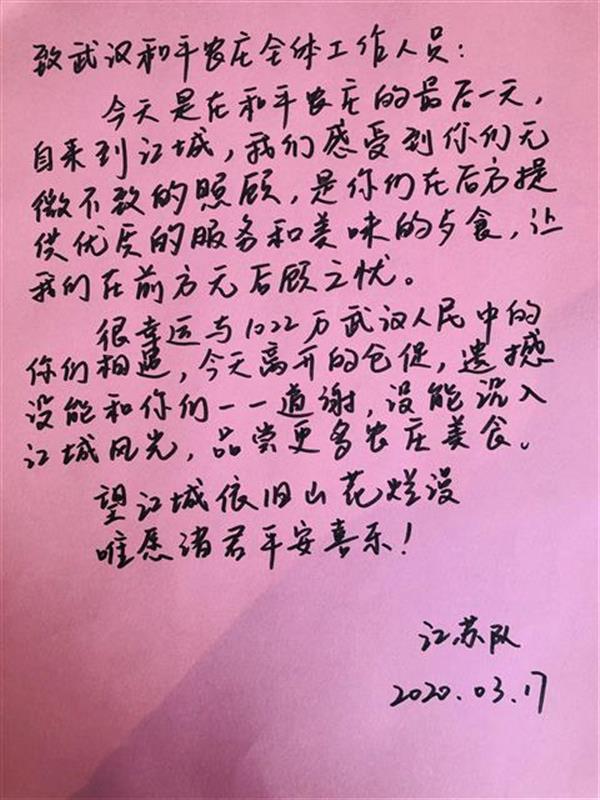 致武汉和平农庄全体工作人员：
今天是在和平农庄的最后一天，
自来到江城，我们感受到你们无
微不致的照顾，是你们在后方提
供优质的服务和美味的夕食，让
我们在前方无后顾之忧。
很幸运与1022万武汉人民中的
你们相遇，今天离开的仓促，遗憾
没能和你们一一道谢，没能沉入
江城风光，品尝更多农庄美食。
望江城依旧山花烂漫
唯愿诸君平安喜乐！
江苏队
2020.03.17